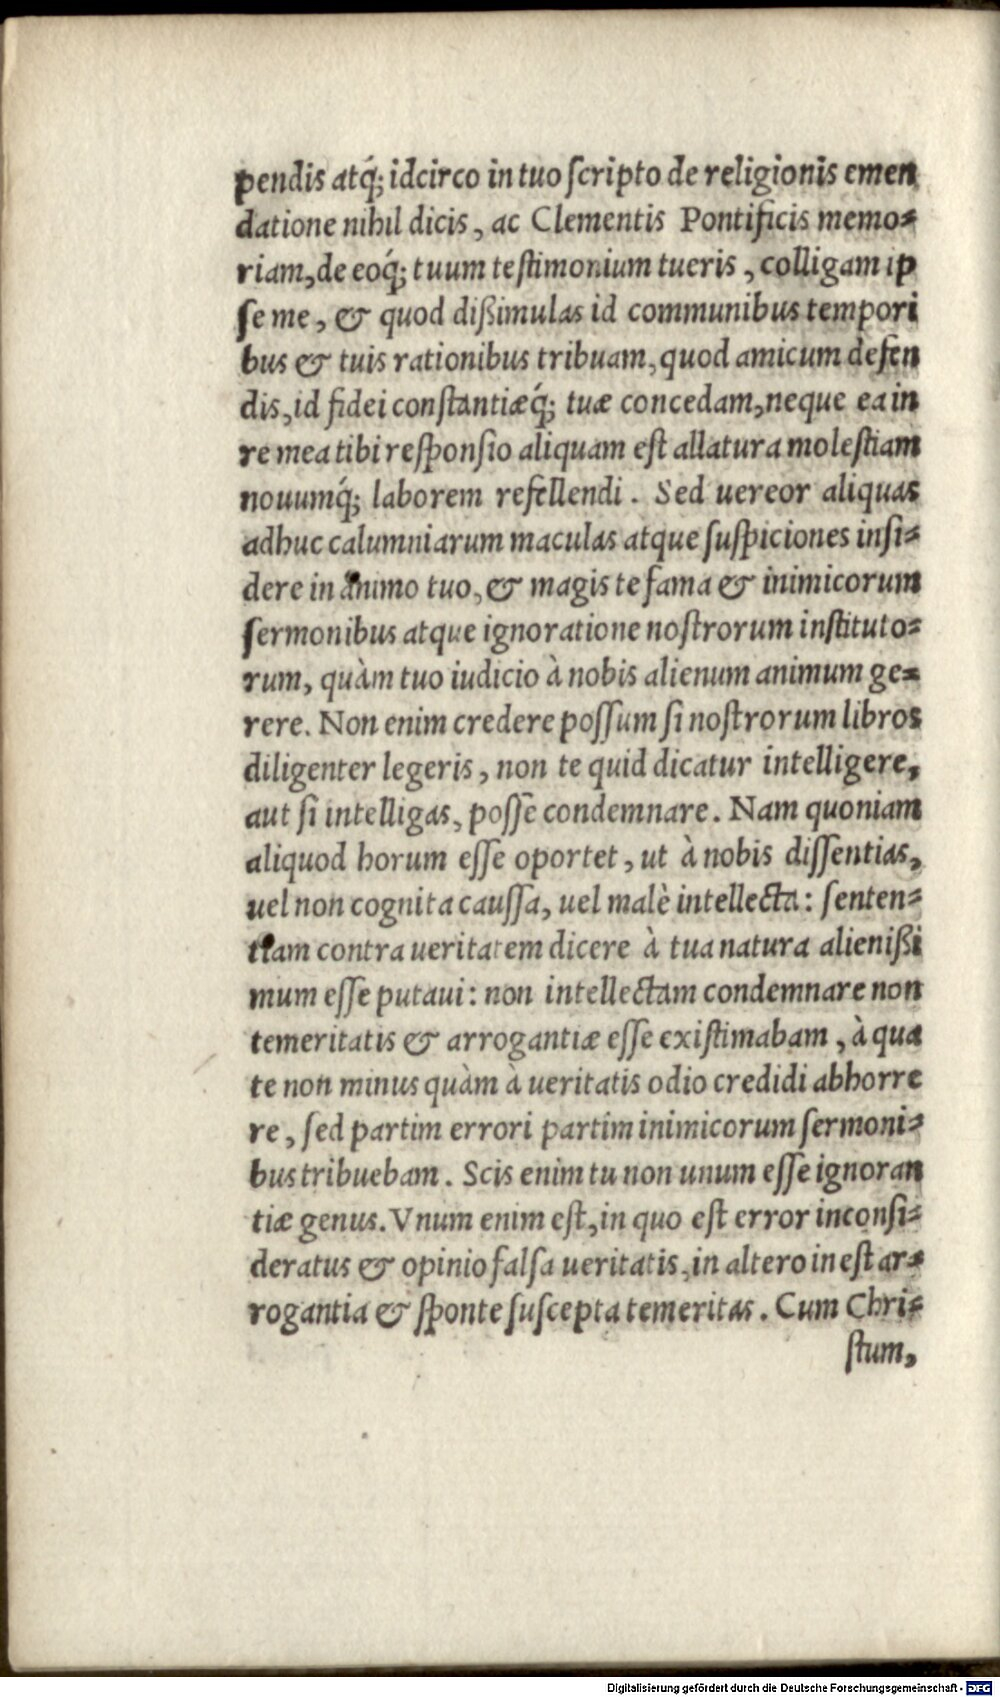 pendis atq́; idcirco in tuo ſcripto de religionis emen
datione nihil dicis, ac Clementis Pontificis memo⸗
riam, de eoq́; tuum teſtimonium tueris, colligam ip
ſe me, & quod dißimulas id communibus tempori
bus & tuis rationibus tribuam, quod amicum defen
dis, id fidei conſtantiæq́; tuæ concedam, neque ea in
re mea tibi reſponſio aliquam eſt allatura moleſtiam
nouumq́; laborem refellendi. Sed uereor aliquas
adhuc calumniarum maculas atque ſuſpiciones inſi⸗
dere in animo tuo, & magis te fama & inimicorum
ſermonibus atque ignoratione noſtrorum inſtituto⸗
rum, quàm tuo iudicio à nobis alienum animum ge⸗
rere. Non enim credere poſſum ſi noſtrorum libros
diligenter legeris, non te quid dicatur intelligere,
aut ſi intelligas, poſſe condemnare. Nam quoniam
aliquod horum eſſe oportet, ut à nobis diſſentias,
uel non cognita cauſſa, uel malè intellecta: ſenten⸗
tiam contra ueritatem dicere à tua natura alienißi
mum eſſe putaui: non intellectam condemnare non
temeritatis & arrogantiæ eſſe exiſtimabam, à qua
te non minus quàm à ueritatis odio credidi abhorre
re, ſed partim errori partim inimicorum ſermoni⸗
bus tribuebam. Scis enim tu non unum eſſe ignoran
tiæ genus. Vnum enim eſt, in quo eſt error inconſi⸗
deratus & opinio falſa ueritatis, in altero ineſt ar⸗
rogantia & ſponte ſuſcepta temeritas. Cum Chri⸗
ſtum,
Digitalisierung gefördert durch die Deutsche Forschungsgemeinschaft - DFG